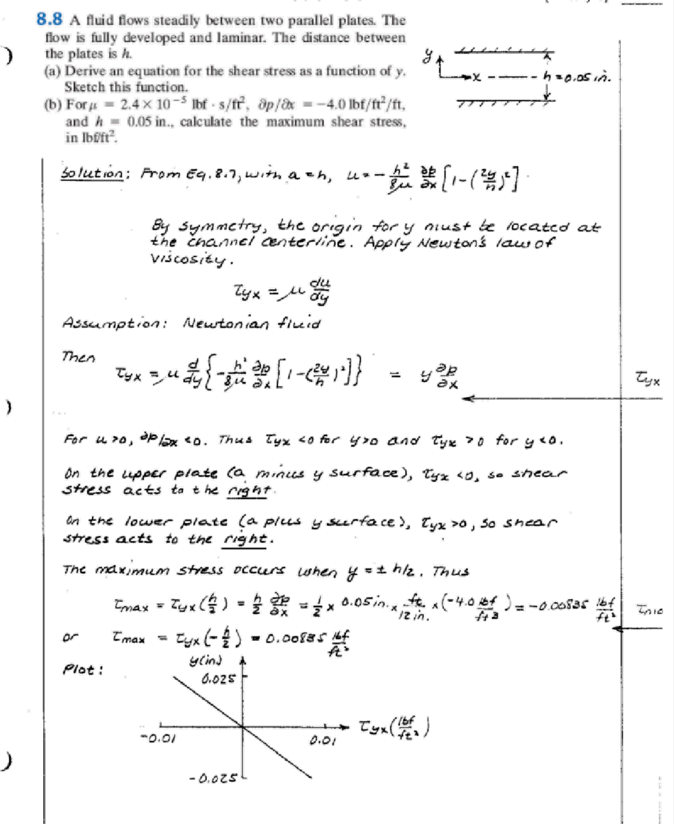 8.8 A fluid flows steadily between two parallel plates. The
flow is fully developed and laminar. The distance between
the plates is h.
(a) Derive an equation for the shear stress as a function of y.
Sketch this function.
(b) For μ = 2.4 × 10⁻⁵ lbf · s/ft², ∂p/∂x = −4.0 lbf/ft²/ft,
and h = 0.05 in., calculate the maximum shear stress,
in lbf/ft².
y
x
h = 0.05 in.
Solution: From Eq. 8.7, with a = h, u = - h²/8μ ∂p/∂x [1-(2y/h)²]
By symmetry, the origin for y must be located at
the channel centerline. Apply Newton's law of
viscosity.
τyx = μ du/dy
Assumption: Newtonian fluid
Then
τyx = μ d/dy {- h²/8μ ∂p/∂x [1-(2y/h)²]} = y ∂p/∂x
τyx
For u>0, ∂p/∂x <0. Thus τyx <0 for y>0 and τyx >0 for y<0.
On the upper plate (a minus y surface), τyx <0, so shear
stress acts to the right.
On the lower plate (a plus y surface), τyx >0, so shear
stress acts to the right.
The maximum stress occurs when y = ± h/2. Thus
τmax = τyx(h/2) = h/2 ∂p/∂x = 1/2 × 0.05 in. × ft/12 in. × (-4.0 lbf/ft³) = -0.00835 lbf/ft²
or τmax = τyx(-h/2) = 0.00835 lbf/ft²
Plot:
y(in)
0.025
-0.01
0.01
τyx(lbf/ft²)
-0.025